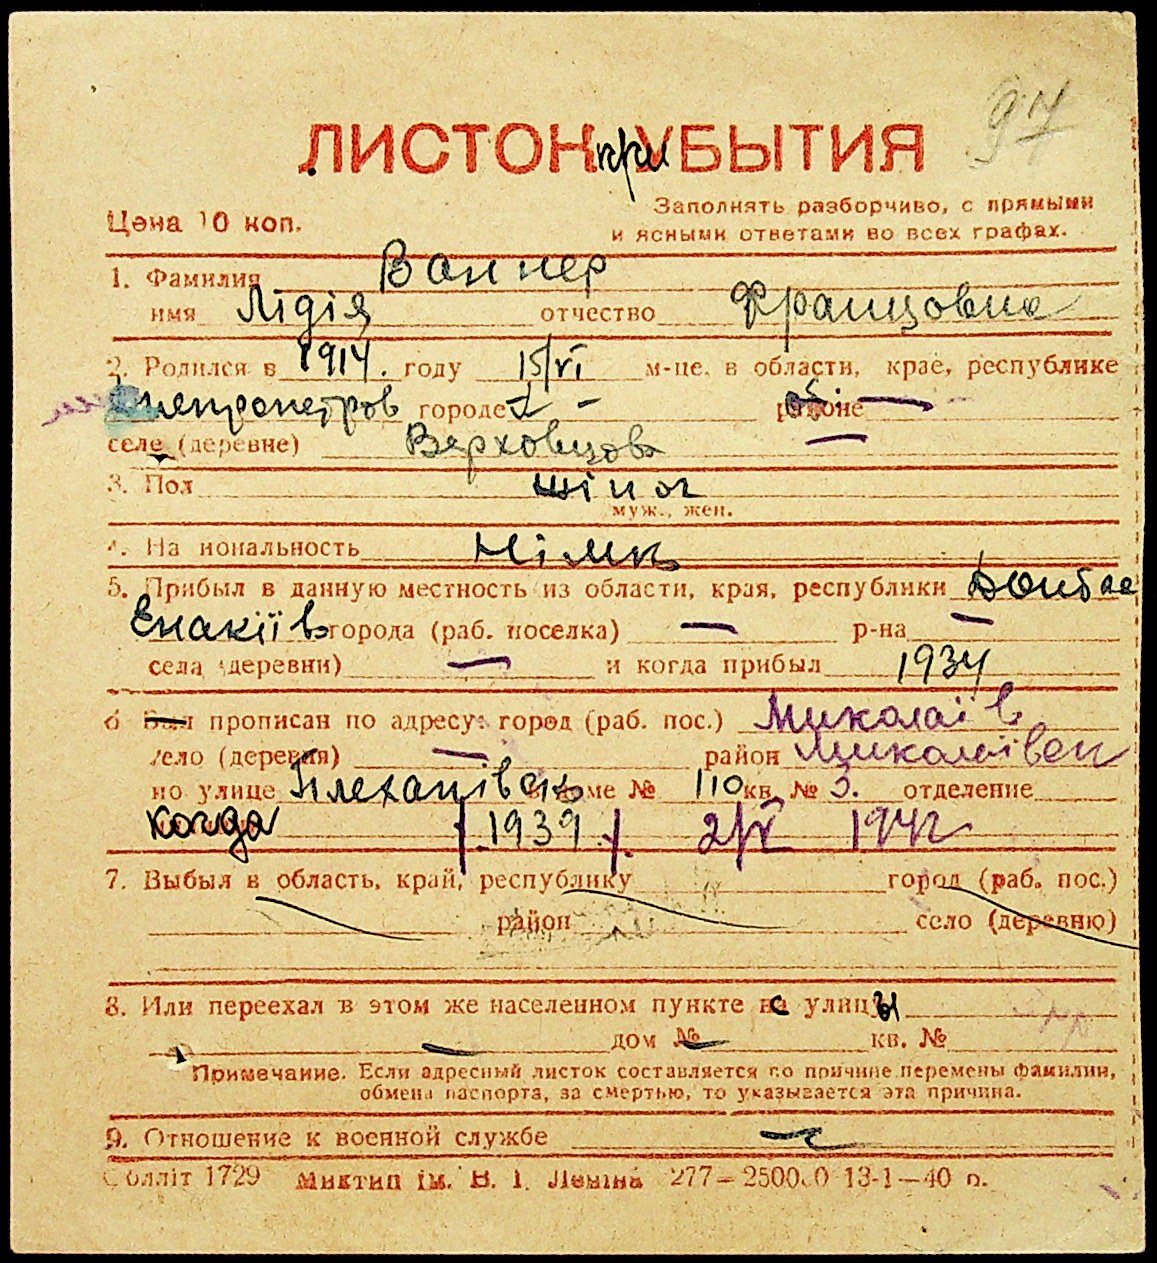 97
ЛИСТОК при УБЫТИЯ
Цена 10 коп.
Заполнять разборчиво, с прямыми
и ясными ответами во всех графах.
1. Фамилия Ваннер
имя Лідія отчество Францовна
2. Родился в 1914. году 15/VI м-це, в области, крае, республике
Днепропетров городе - районе —
селе (деревне) Верховцево —
3. Пол жіноч
муж., жен.
4. На иональность Німк
5. Прибыл в данную местность из области, края, республики Донбас
Енакіїв города (раб. поселка) — р-на —
села (деревни) — и когда прибыл 1934
6 Был прописан по адресу: город (раб. пос.) Миколаїв
село (деревня) — район Миколаївськ
по улице Плеханівськ доме № 110 кв. № 3. отделение
когда 1939 2/V 1942
7. Выбыл в область, край, республику город (раб. пос.)
район село (деревню)
8. Или переехал в этом же населенном пункте с улицы
— дом № — кв. №
Примечание. Если адресный листок составляется по причине перемены фамилии,
обмена паспорта, за смертью, то указывается эта причина.
9. Отношение к военной службе —
Облліт 1729 Миктип ім. В. І. Леніна 277—25000 13-1—40 р.